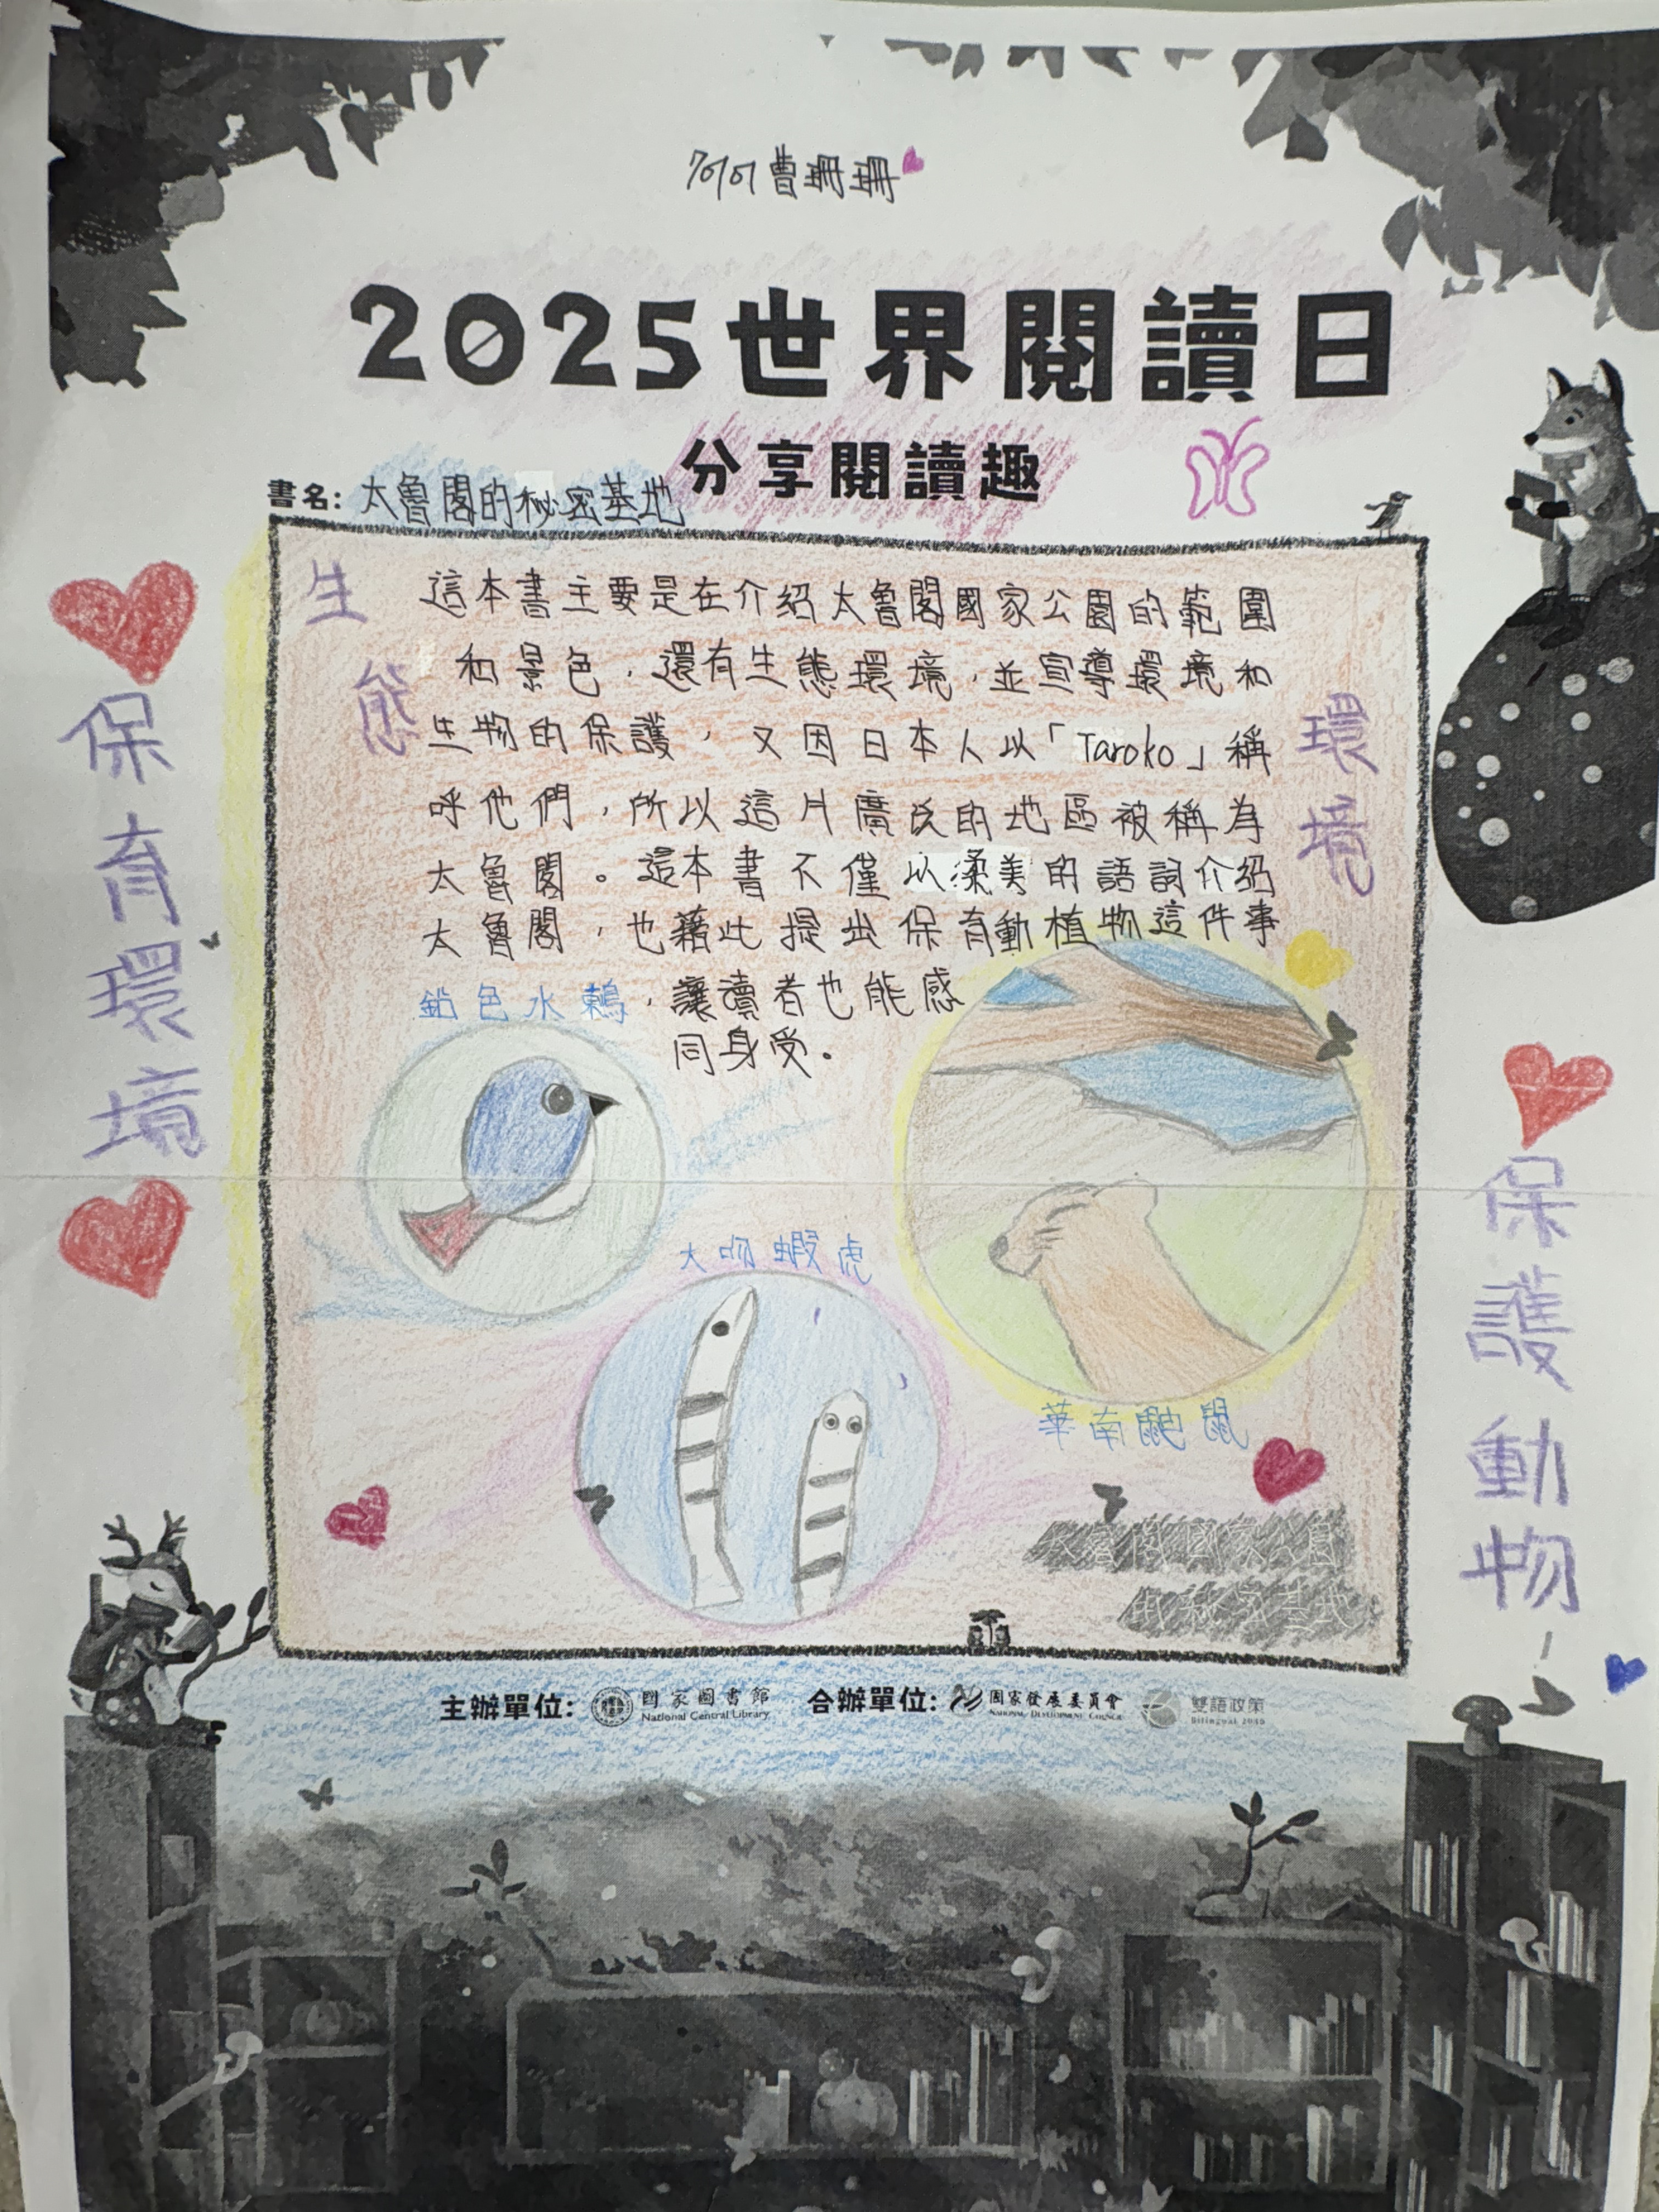 70101曹珊珊
2025世界閱讀日
分享閱讀趣
書名: 太魯閣的秘密基地
生態
環境
這本書主要是在介紹太魯閣國家公園的範圍
和景色，還有生態環境，並宣導環境和
生物的保護，又因日本人以「Taroko」稱
呼他們，所以這片廣闊的地區被稱為
太魯閣。這本書不僅以柔美的語詞介紹
太魯閣，也藉此提出保育動植物這件事
，讓讀者也能感
同身受。
鉛色水鶇
大吻蝦虎
華南鼬鼠
太魯閣國家公園
的秘密基地
保育環境
保護動物
主辦單位: 國家圖書館 National Central Library 合辦單位: 國家發展委員會 NATIONAL DEVELOPMENT COUNCIL 雙語政策 Bilingual 2030